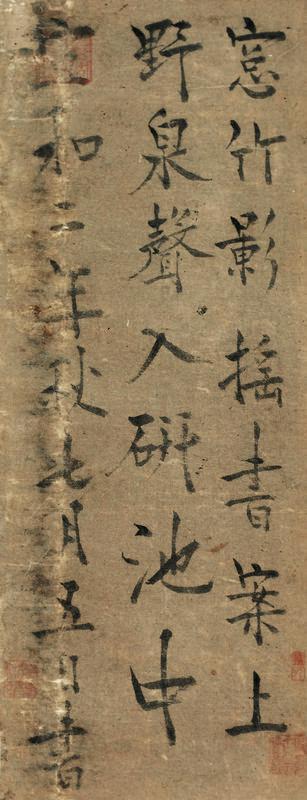 窓竹影揺書案上
野泉聲入硏池中
和二年秋七月五日書